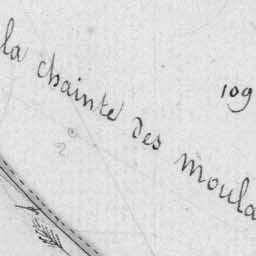 la chainte des moula
109
2